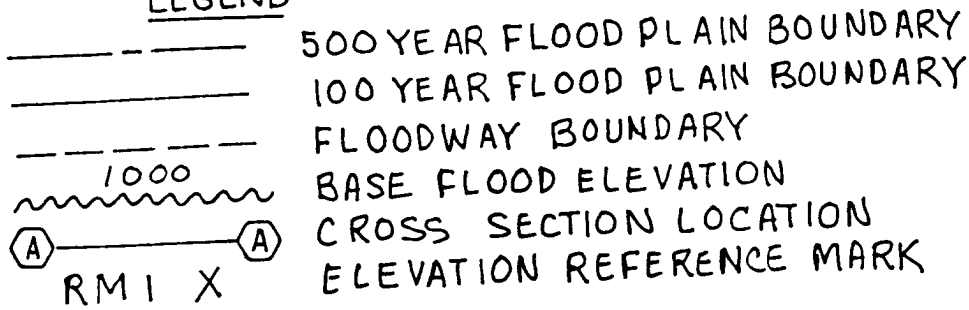 LEGEND
500 YEAR FLOOD PLAIN BOUNDARY
100 YEAR FLOOD PLAIN BOUNDARY
FLOODWAY BOUNDARY
1000 BASE FLOOD ELEVATION
A A CROSS SECTION LOCATION
RM 1 X ELEVATION REFERENCE MARK